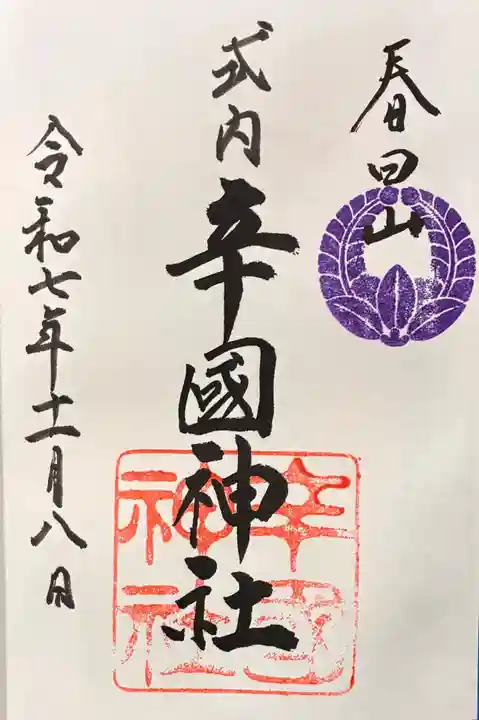 春日山
式内 辛國神社
令和七年十一月八日
辛國
神社